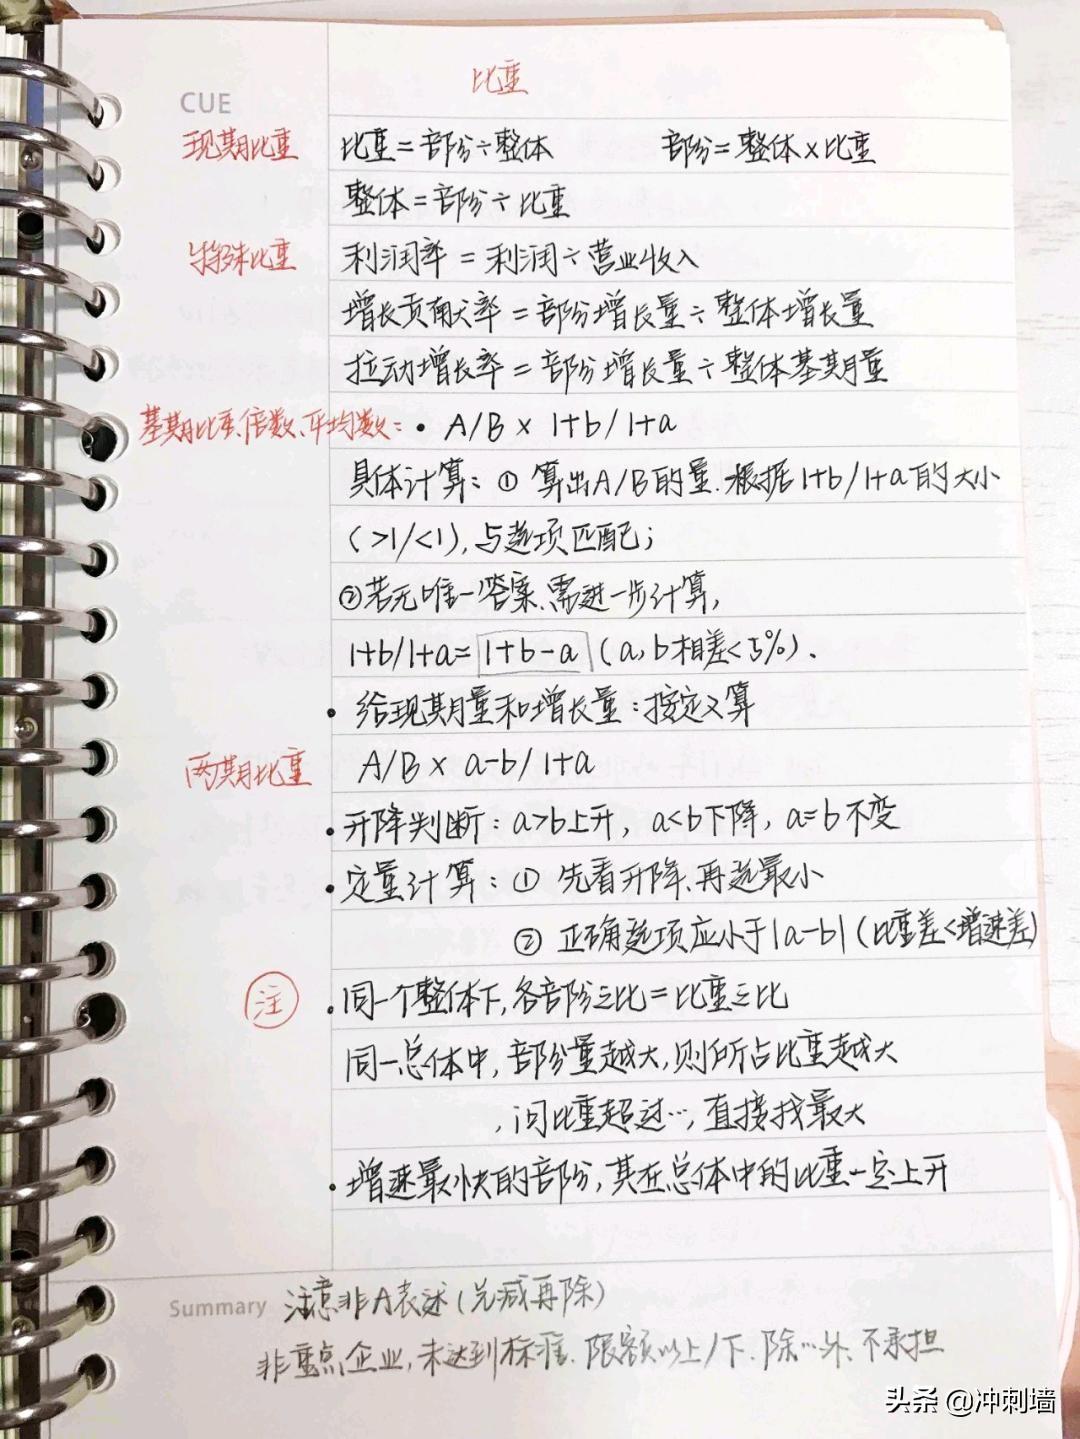 比重
CUE
现期比重 比重=部分÷整体 部分=整体×比重
整体=部分÷比重
特殊比重 利润率=利润÷营业收入
增长贡献率=部分增长量÷整体增长量
拉动增长率=部分增长量÷整体基期量
基期比重、倍数、平均数: • A/B × 1+b/1+a
具体计算:① 算出A/B的量.根据1+b/1+a的大小
(>1/<1),与选项匹配;
②若无唯一答案、需进一步计算,
1+b/1+a=1+b-a(a,b相差<5%).
• 给现期量和增长量:按定义算
两期比重 A/B× a-b/1+a
•升降判断:a>b上升,a<b下降,a=b不变
•定量计算:① 先看升降、再选最小
② 正确选项应小于|a-b|(比重差<增速差)
注 •同一个整体下,各部分之比=比重之比
同一总体中,部分量越大,则所占比重越大
,问比重超过…,直接找最大
•增速最快的部分,其在总体中的比重一定上升
Summary 注意非A表述(先减再除)
非重点企业,未达到标准、限额以上/下、除…外、不承担
头条 @冲刺墙